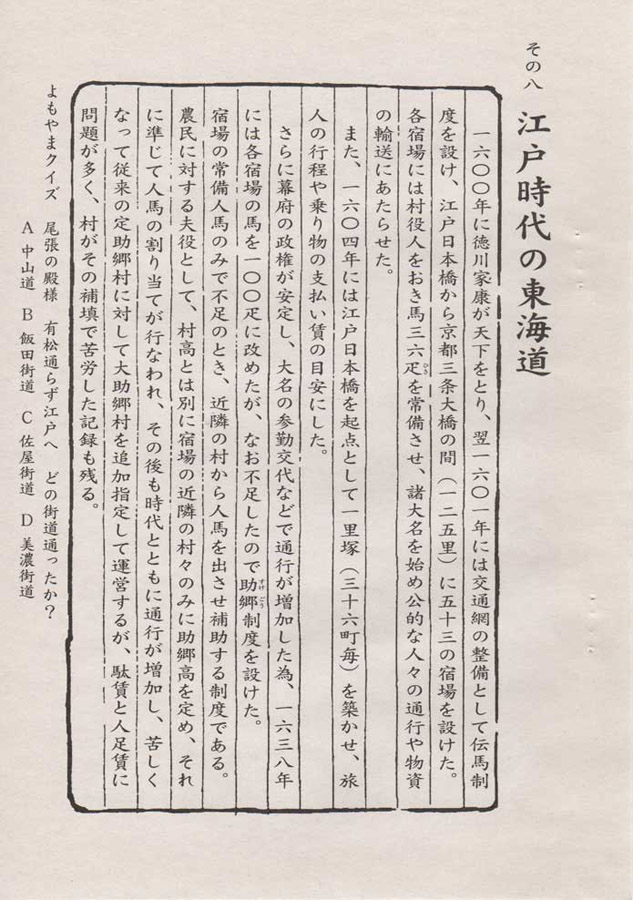 その八 江戸時代の東海道
一六〇〇年に徳川家康が天下をとり、翌一六〇一年には交通網の整備として伝馬制
度を設け、江戸日本橋から京都三条大橋の間（一二五里）に五十三の宿場を設けた。
各宿場には村役人をおき馬三六疋を常備させ、諸大名を始め公的な人々の通行や物資
ひき
の輸送にあたらせた。
また、一六〇四年には江戸日本橋を起点として一里塚（三十六町毎）を築かせ、旅
人の行程や乗り物の支払い賃の目安にした。
さらに幕府の政権が安定し、大名の参勤交代などで通行が増加した為、一六三八年
には各宿場の馬を一〇〇疋に改めたが、なお不足したので助郷制度を設けた。
すけごう
宿場の常備人馬のみで不足のとき、近隣の村から人馬を出させ補助する制度である。
農民に対する夫役として、村高とは別に宿場の近隣の村々のみに助郷高を定め、それ
に準じて人馬の割り当てが行なわれ、その後も時代とともに通行が増加し、苦しく
なって従来の定助郷村に対して大助郷村を追加指定して運営するが、駄賃と人足賃に
問題が多く、村がその補填で苦労した記録も残る。
よもやまクイズ 尾張の殿様 有松通らず江戸へ どの街道通ったか？
A 中山道 B 飯田街道 C 佐屋街道 D 美濃街道